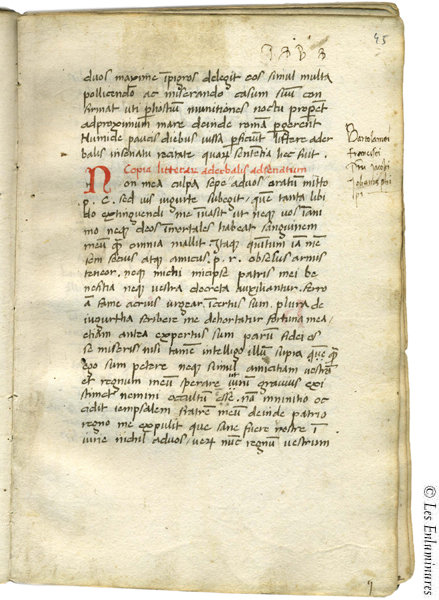 45
duos maxime ipigros delegit eos simul multa
pollicendo ac miserando casum suū con
firmat uti p hostiū munitiones noctu propet
ad proximum mare deinde romā pgerent
Numide paucis diebus iussa pficiūt littere ader
balis in senatu recitate quarū sententia hec fuit.
Copia litterarū aderbalis ad senatum
Non mea culpa sepe ad uos oratū mitto
p. c. sed uis iugurte subegit, que tanta libi
do extinguendi me inuasit ut neq uos iam
mo neq deos īmortales habeat sanguinem
meū q̄ omnia mallit Itaq quintum iā mē
sem socius atq amicus .p. r. obsessus armis
teneor. neq michi micipse patris mei be
neficia neq uestra decreta auxiliantur. ferro
ā fame acrius urgear Īcertus sum. plura de
iugurtha scribere me dehortatur fortuna mea,
etiam antea expertus sum parū fidei es
se miseris nisi tamē intelligo illū supra que q̄
ego sum petere neq simul amicitiam uestrā
et regnum meū sperare utrū grauius exi
stimet nemini occultū esse. nā in initio oc
cidit iempsalem fratrē meū deinde patrio
regno me expulit que sane fuere nostre ī
iurie nichil ad uos, uerū nūc regnū uestrum
Bartolameo
Francesci
Jacopi
© Les Enluminures